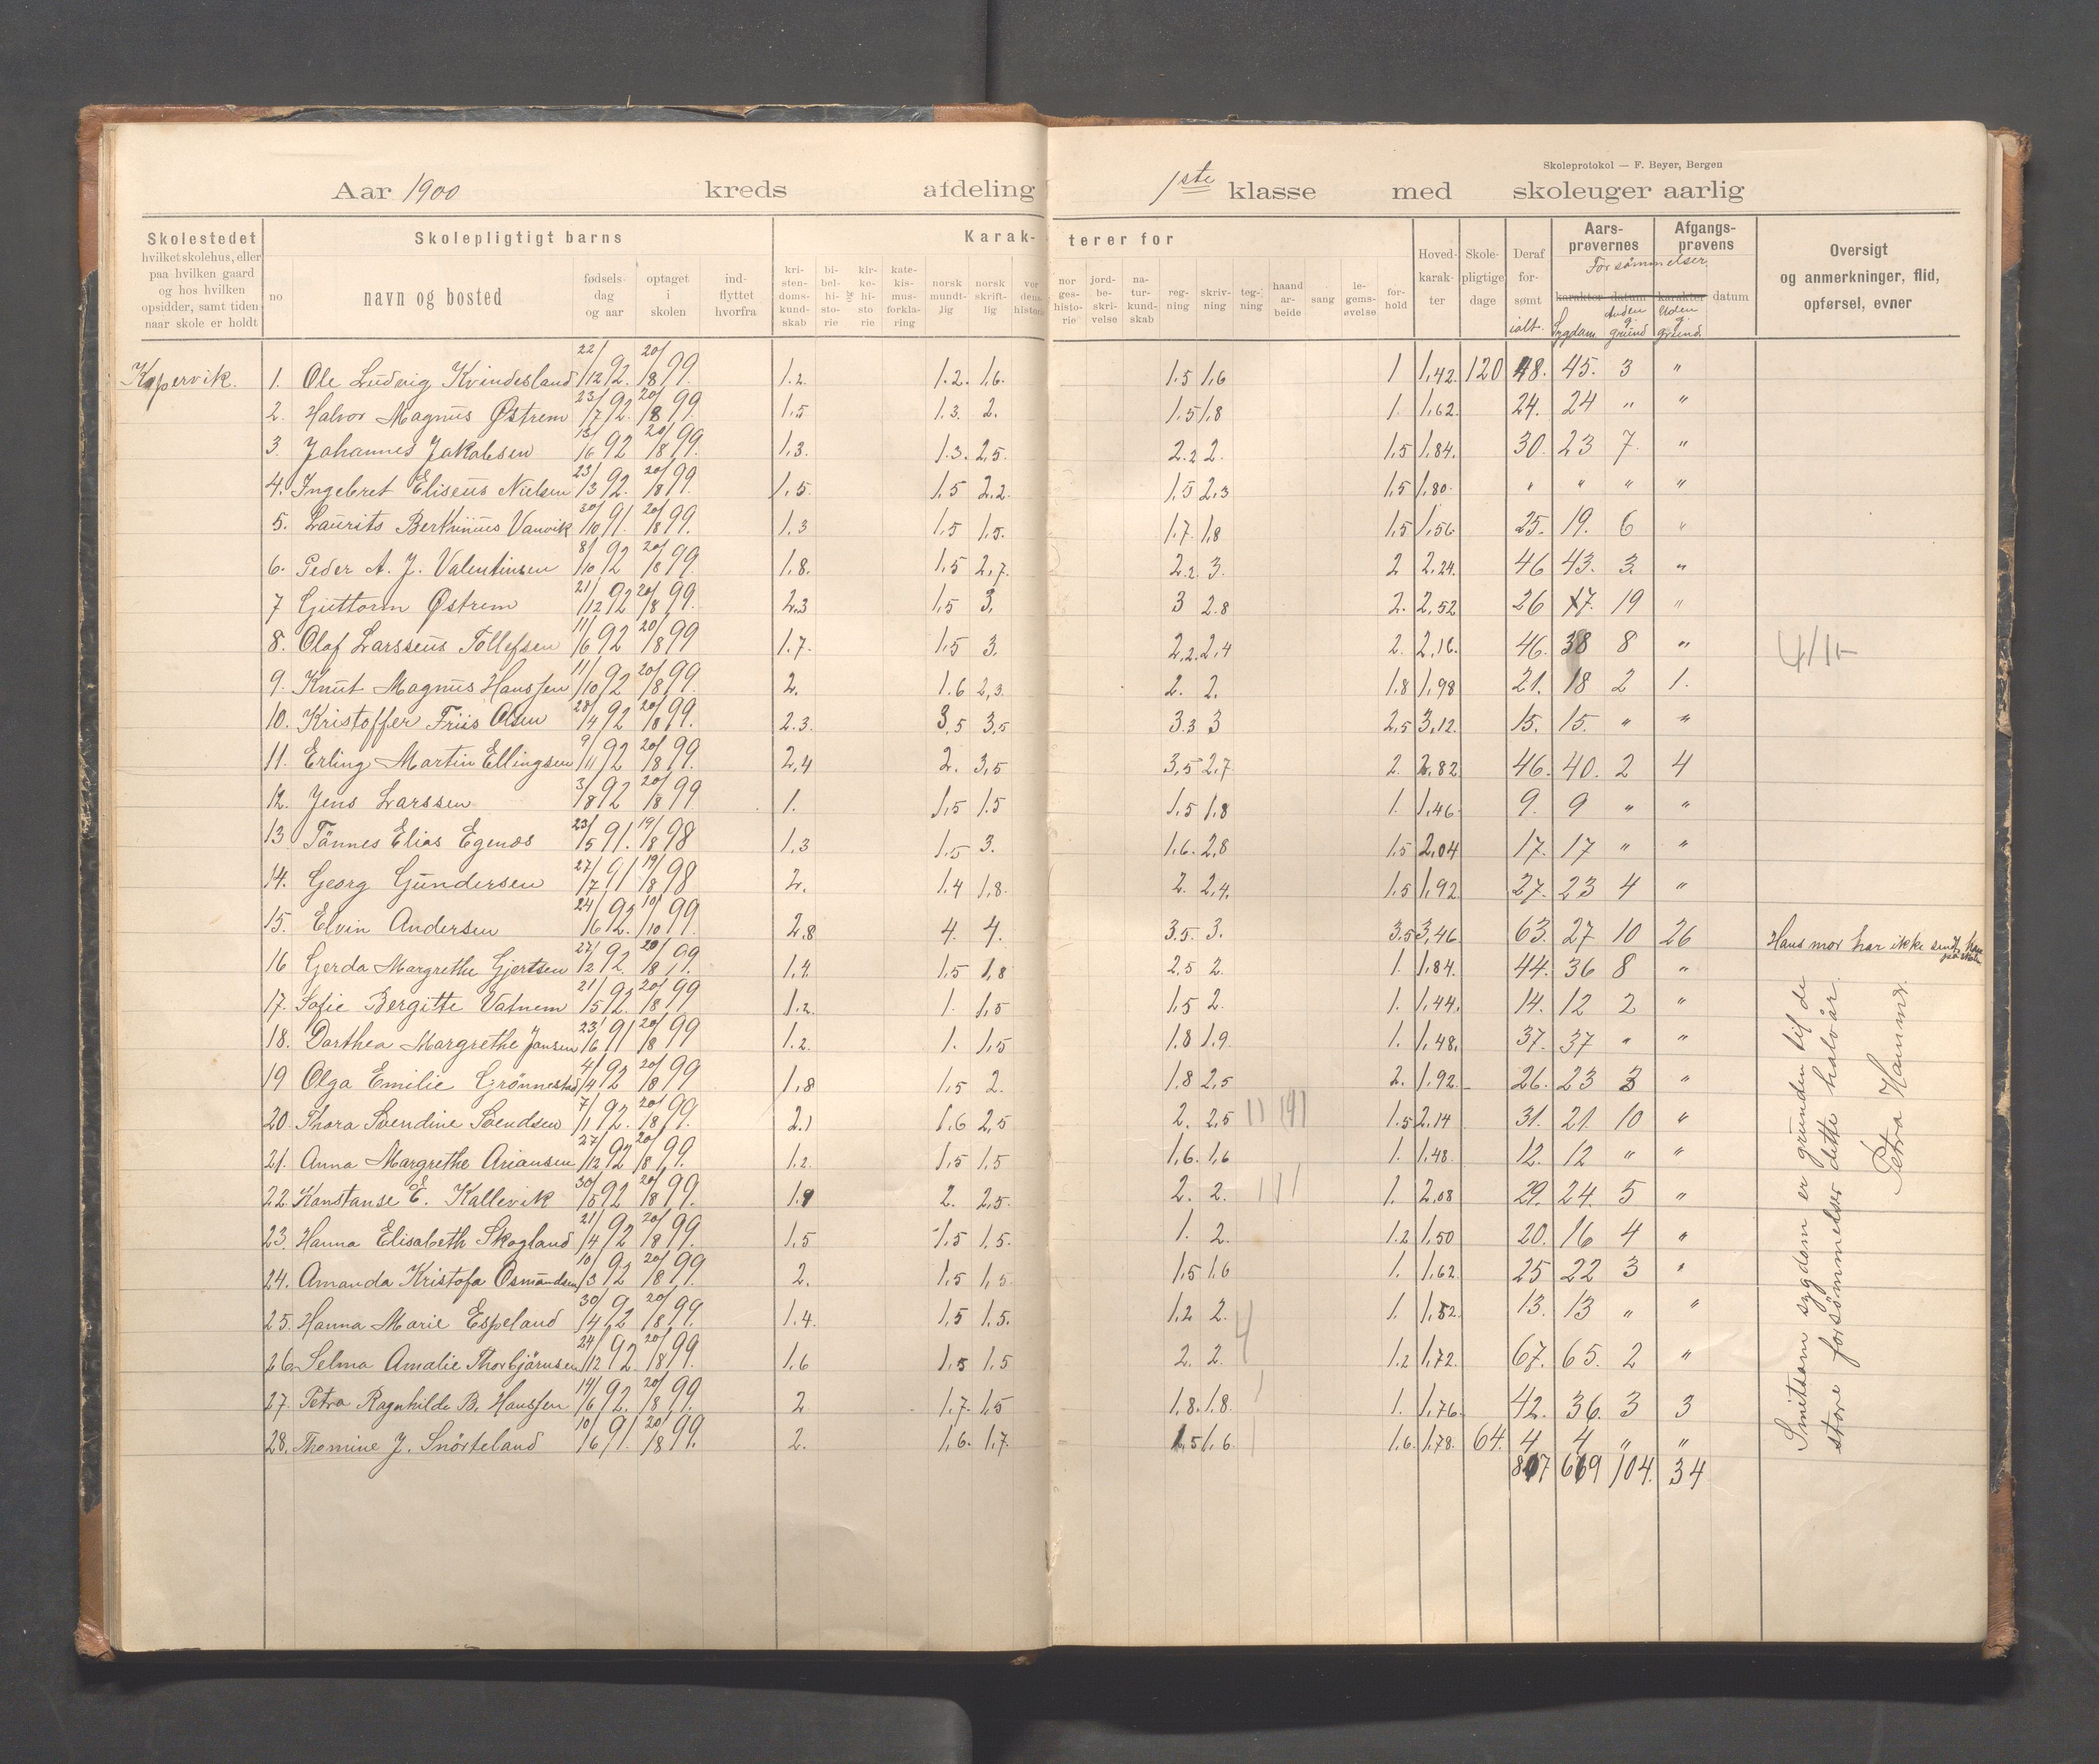 Skoleprotokol — F. Beyer, Bergen
Aar 1900 kreds afdeling 1ste klasse med skoleuger aarlig
Skolestedet hvilket skolehus, eller paa hvilken gaard og hos hvilken opsidder, samt tiden naar skole er holdt
Skolepligtigt barns
no navn og bosted fødselsdag og aar optaget i skolen indflyttet hvorfra
Karakterer for
kristendomskundskab bibelhistorie kirkehistorie katekismusforklaring norsk mundtlig norsk skriftlig verdenshistorie norgeshistorie jordbeskrivelse naturkundskab regning skrivning tegning haandarbeide sang legemsøvelse forhold
Hovedkarakter Skolepligtige dage Deraf forsømt ialt.
Aarsprøvernes Afgangsprøvens
Forsømmelser.
karakter datum karakter datum
Sygdom Anden g. grund Uden g. grund.
Oversigt og anmerkninger, flid, opførsel, evner
Kopervik. 1. Ole Ludvig Kvindesland 22/12 92. 20/8 99. 1.2. 1.2. 1,6. 1.5 1,6 1 1,42. 120 48. 45. 3 "
2. Halvor Magnus Østrem 23/7 92. 20/8 99. 1,5 1.3. 2. 1,5 1,8 1. 1,62. 24. 24 " "
3. Johannes Jakobsen 13/6 92 20/8 99. 1,3. 1.3. 2,5. 2.2 2. 1,5 1,84. 30. 23 7. "
4. Ingebret Eliseus Nielsen 23/3 92. 20/8 99. 1,5. 1,5 2,2. 1,5 2,3 1,5 1,80. " " " "
5. Laurits Berthinius Vanvik 30/10 91. 20/8 99. 1,3 1,5 1,5. 1,7. 1,8 1,5 1,56 25. 19. 6 "
6. Peder A. J. Valentinsen 8/10 92 20/8 99. 1,8. 1,5 2,7. 2.2. 3. 2 2,24. 46 43. 3. "
7 Guttorm Østrem 21/12 92 20/8 99. 2.3 1,5 3. 3 2.8 2. 2,52 26 17. 19 "
8. Olaf Larsseus Tollefsen 11/6 92 20/8 99 1.7. 1,5 3. 2,2. 2,4 2. 2,16. 46. 38 8 "
9. Knut Magnus Hanssen 11/10 92 20/8 99. 2. 1.6 2,3. 2. 2. 1,8 1,98 21. 18 2 1.
10. Kristoffer Friis Olsen 28/4 92 20/8 99. 2.3. 3,5 3,5 3.3 3 2,5 3,12. 15. 15. " "
11. Erling Martin Ellingsen 9/11 92 20/8 99. 2,4 2. 3,5 3,5 2,7. 2. 2,82 46. 40. 2 4
12. Jens Larssen 3/8 92 20/8 99 1. 1,5 1.5 1,5 1,8 1. 1,46. 9. 9 " "
13 Tønnes Elias Egenæs 23/5 91. 19/8 98 1,3 1.5 3. 1.6. 2,8 1.5 2,04 17. 17 " "
14. Georg Gundersen 27/7 91 19/8 98 2. 1,4 1,8. 2. 2,4. 1.5 1,92. 27. 23 4 "
15. Elvin Andersen 24/6 92. 10/10 99. 2,8 4. 4. 3.5. 3. 3.5 3,46 63. 27 10 26 Hans mor har ikke sendt ham på skolen
16 Gerda Margrethe Gjertsen 27/2 92. 20/8 99. 1,4. 1,5 1,8 2,5 2. 1. 1,84. 44. 36 8 "
17. Sofie Bergitte Vatnem 21/5 92. 20/8 99 1.2. 1. 1,5 1,5 2. 1. 1,44. 14. 12 2 "
18. Dorthea Margrethe Jansen 23/6 91 20/8 99 1.2. 1. 1,5 1.8 1.9. 1. 1,48. 37. 37 " "
19 Olga Emilie Grønnestad 4/4 92 20/8 99 1,8 1,5 2. 1.8 2,5 2. 1,92. 26. 23 3 "
20. Thora Svendine Svendsen 7/1 92. 20/8 99. 2.1 1,6 2,5 2. 2,5 1.5 2,14 31. 21. 10 "
21. Anna Margrethe Ariansen 27/12 92 20/8 99. 1.2. 1,5 1,5 1,6. 1,6 1. 1,48. 12. 12 " "
22. Konstanse E. Kallevik 30/5 92 20/8 99. 1.9 2. 2,5. 2. 2. 1. 2,08 29. 24. 5 "
23. Hanna Elisabeth Skogland 21/4 92 20/8 99. 1,5 1,5 1,5. 1. 2. 1.2 1,50 20. 16 4 "
24. Amanda Kristofa Osmundsen 10/3 92 20/8 99. 2. 1,5 1,5 1,5 1.6 1. 1,62. 25 22 3 "
25. Hanna Marie Espeland 30/4 92 20/8 99. 1.4. 1,5 1,5. 1.2 2. 1. 1,52. 13. 13 " "
26. Selma Amalie Thorbjørnsen 24/12 92. 20/8 99. 1.6 1,5 1,5 2. 2. 1.2 1,72. 67. 65. 2 "
27. Petra Ragnhilde B. Hanssen 14/6 92. 20/8 99. 2 1,7. 1,5 1,8. 1.8. 1. 1,76. 42. 36. 3 3
28. Thomine J. Snørteland 10/6 91. 20/8 99. 2. 1,6. 1.7. 1.5 1,6. 1.6. 1,78. 64. 4 4 " "
807 669 104. 34
Smitsom sygdom er grunden til de
store forsømmelser dette halvår.
Petra Hamnæ.